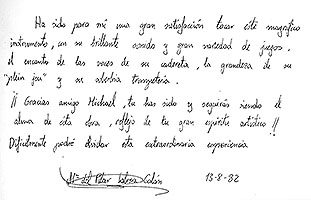 Ha sido para mí una gran satisfacción tocar este magnífico
instrumento, con su brillante sonido y gran variedad de juegos.
El encanto de las voces de su cadereta, la grandeza de su
"plein jeu" y su soberbia trompetería.
¡¡ Gracias amigo Michael, tu has sido y seguirás siendo el
alma de esta obra, reflejo de tu gran espíritu artístico!!
Difícilmente podré olvidar esta extraordinaria experiencia
Mª del Pilar Cabrera Colán
13-8-92